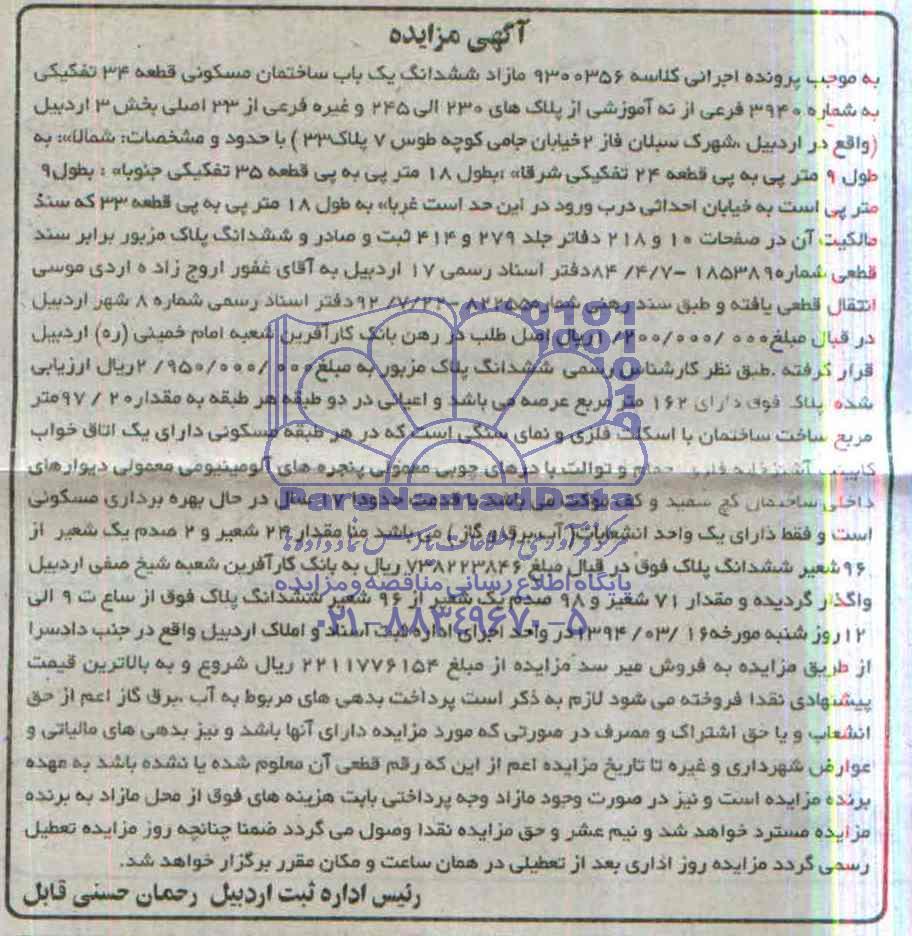 آگهی مزایده
به موجب پرونده اجرائی کلاسه ۹۳۰۰۳۵۶ مازاد ششدانگ یک باب ساختمان مسکونی قطعه ۳۴ تفکیکی
به شماره ۳۹۴۰ فرعی از نه آموزشی از پلاک های ۲۳۰ الی ۲۴۵ و غیره فرعی از ۲۳ اصلی بخش ۳ اردبیل
(واقع در اردبیل ،شهرک سبلان فاز ۲خیابان جامی کوچه طوس ۷ پلاک۳۳ ) با حدود و مشخصات: شمالا»: به
طول ۹ متر پی به پی قطعه ۲۴ تفکیکی شرقا» :بطول ۱۸ متر پی به پی قطعه ۳۵ تفکیکی جنوبا» : بطول۹
متر پی است به خیابان احداثی درب ورود در این حد است غربا» به طول ۱۸ متر پی به پی قطعه ۳۳ که سند
مالکیت آن در صفحات ۱۰ و ۲۱۸ دفاتر جلد ۲۷۹ و ۴۱۴ ثبت و صادر و ششدانگ پلاک مزبور برابر سند
قطعی شماره۱۸۵۳۸۹ -۸۴/۴/۷دفتر اسناد رسمی ۱۷ اردبیل به آقای غفور اروج زاد ه اردی موسی
انتقال قطعی یافته و طبق سند رهنی شماره۸۲۲۵۵ -۹۲/۷/۲۲دفتر اسناد رسمی شماره ۸ شهر اردبیل
در قبال مبلغ۰۰۰/۰۰۰/۲۰۰/۱ریال اصل طلب در رهن بانک کارآفرین شعبه امام خمینی (ره) اردبیل
قرار گرفته .طبق نظر کارشناس رسمی ششدانگ پلاک مزبور به مبلغ۰۰۰/۰۰۰/۹۵۰/۲ریال ارزیابی
شده پلاک فوق دارای ۱۶۲ متر مربع عرصه می باشد و اعیانی در دو طبقه هر طبقه به مقدار۲۰ / ۹۷متر
مربع ساخت ساختمان با اسکلت فلزی و نمای سنگی است که در هر طبقه مسکونی دارای یک اتاق خواب
کابینت آشپزخانه فلزی حمام و توالت با درهای چوبی معمولی پنجره های آلومینیومی معمولی دیوارهای
داخلی ساختمان گچ سفید و کف موکت می باشد با قدمت حدودا ۱۷ سال در حال بهره برداری مسکونی
است و فقط دارای یک واحد انشعابات( آب،برق،و گاز ) می باشد منا مقدار ۲۴ شعیر و ۲ صدم یک شعیر از
۹۶شعیر ششدانگ پلاک فوق در قبال مبلغ ۷۳۸۲۲۳۸۴۶ ریال به بانک کارآفرین شعبه شیخ صفی اردبیل
واگذار گردیده و مقدار ۷۱ شعیر و ۹۸ صدم یک شعیر از ۹۶ شعیر ششدانگ پلاک فوق از ساع ت ۹ الی
۱۲روز شنبه مورخه۱۶ /۰۳/ ۱۳۹۴در واحد اجرای اداره ثبت اسناد و املاک اردبیل واقع در جنب دادسرا
از طریق مزایده به فروش میر سد مزایده از مبلغ ۲۲۱۱۷۷۶۱۵۴ ریال شروع و به بالاترین قیمت
پیشنهادی نقدا فروخته می شود لازم به ذکر است پرداخت بدهی های مربوط به آب ،برق گاز اعم از حق
انشعاب و یا حق اشتراک و مصرف در صورتی که مورد مزایده دارای آنها باشد و نیز بدهی های مالیاتی و
عوارض شهرداری و غیره تا تاریخ مزایده اعم از این که رقم قطعی آن معلوم شده یا نشده باشد به عهده
برنده مزایده است و نیز در صورت وجود مازاد وجه پرداختی بابت هزینه های فوق از محل مازاد به برنده
مزایده مسترد خواهد شد و نیم عشر و حق مزایده نقدا وصول می گردد ضمنا چنانچه روز مزایده تعطیل
رسمی گردد مزایده روز اداری بعد از تعطیلی در همان ساعت و مکان مقرر برگزار خواهد شد.
رئیس اداره ثبت اردبیل رحمان حسنی قابل
پایگاه اطلاع رسانی مناقصه و مزایده
۰۲۱-۸۸۳۴۹۶۷۰-۵